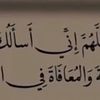 للهم إني أسألك
ة والمعافاة في ا